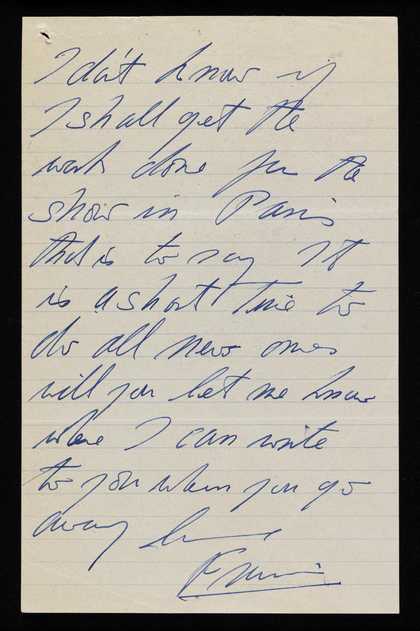 I don't know if
I shall get the
work done for the
show in Paris
that is to say It
is a short time to
do all new ones
will you let me know
where I can write
to you when you go
away love
Francis